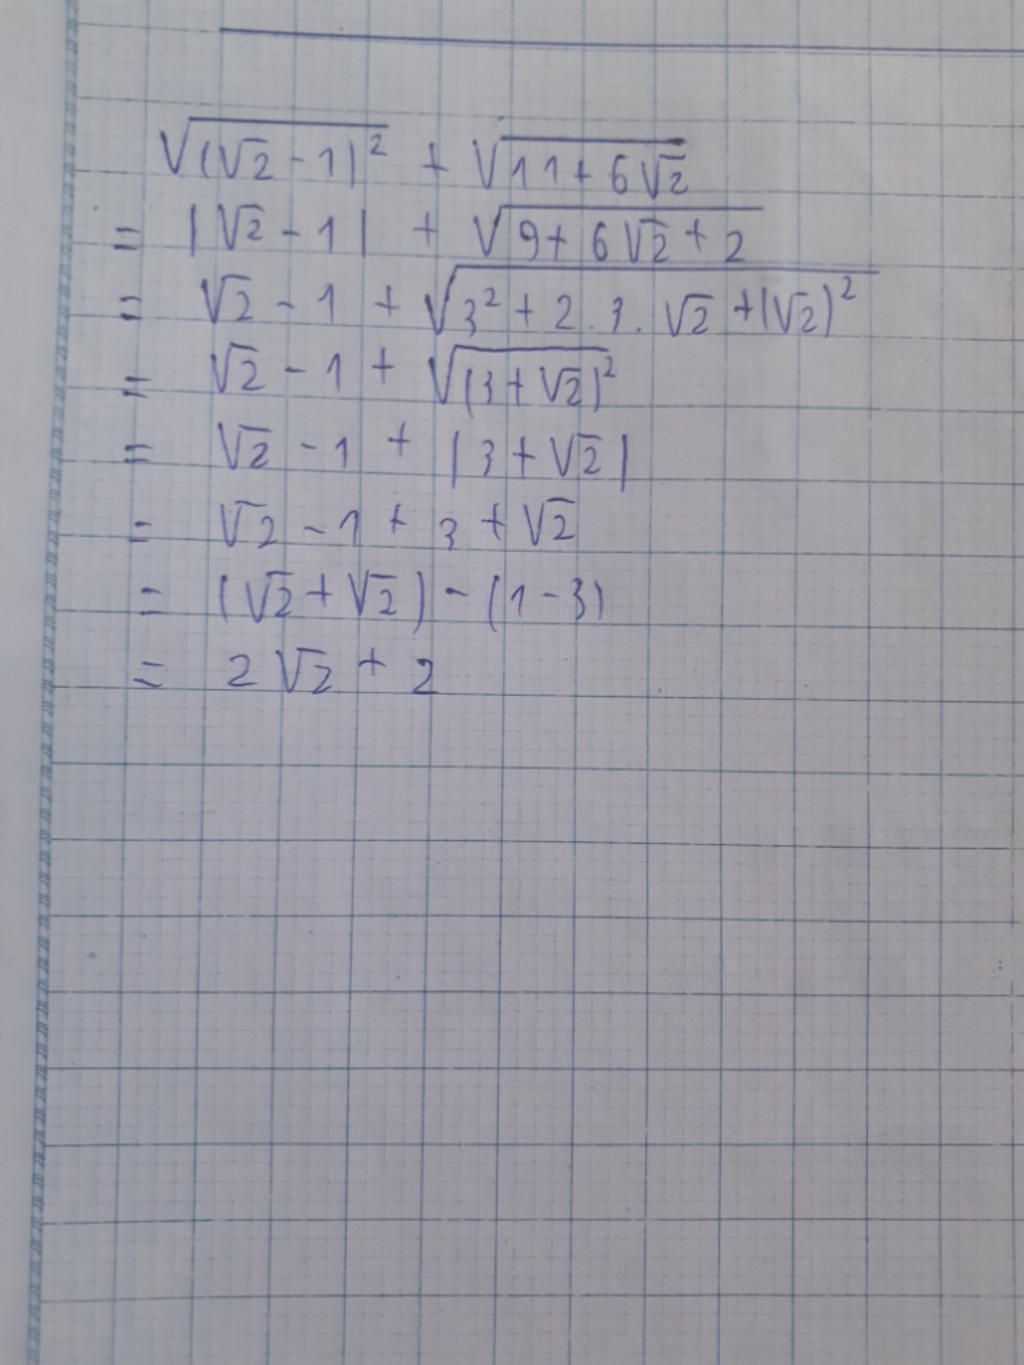 √(√2 - 1)² + √11 + 6√2
= |√2 - 1| + √9 + 6√2 + 2
= √2 - 1 + √3² + 2.3.√2 + (√2)²
= √2 - 1 + √(3 + √2)²
= √2 - 1 + |3 + √2|
= √2 - 1 + 3 + √2
= (√2 + √2) - (1 - 3)
= 2√2 + 2